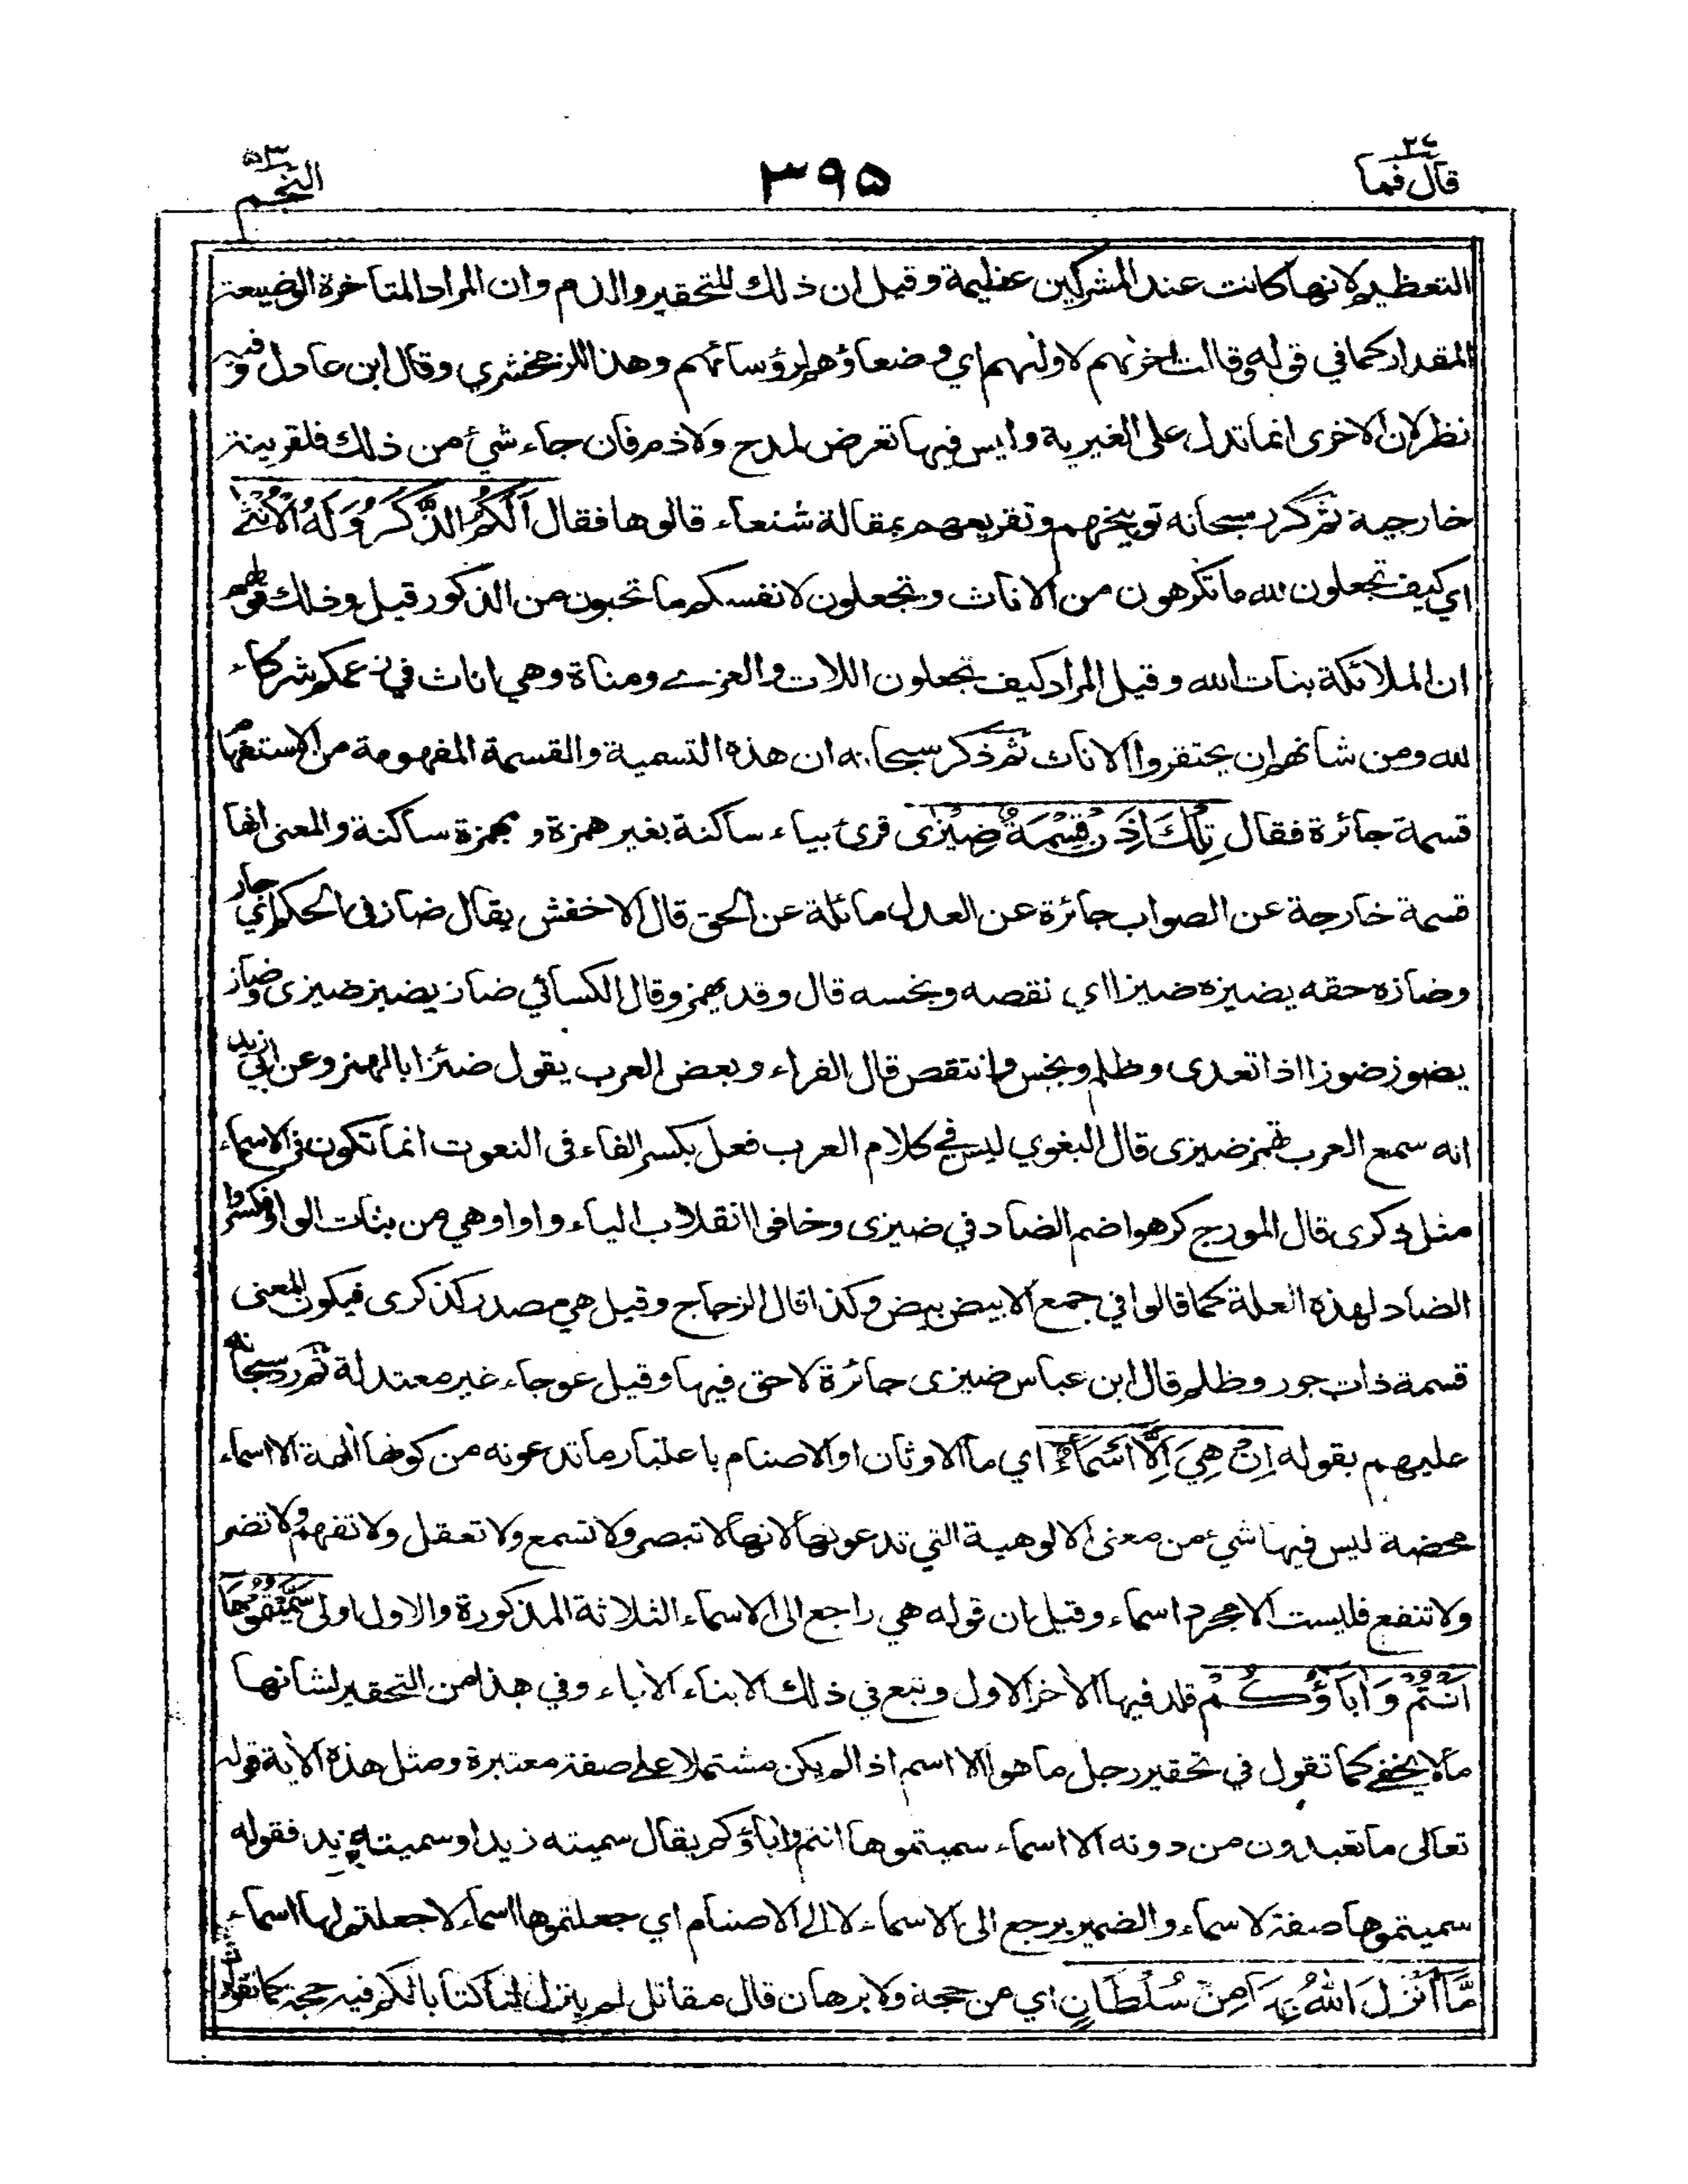 قال فما ٢٧
٣٩٥
النجم ٥٣
التعظيم لانها كانت عند المشركين عظيمة وقيل ان ذلك للتحقير والذم وان المراد المتأخرة الوضيعة
المقدار كما في قوله وقالت اخرٰهم لاولٰهم اي وضعاؤهم لرؤسائهم وهذا للزمخشري وقال ابن عادل وفيه
نظر لان الاخرى انما تدل على الغيرية وليس فيها تعرض لمدح ولا ذم فان جاء شيء من ذلك فلقرينة
خارجية ثم كرر سبحانه توبيخهم وتقريعهم بمقالة شنعاء قالوها فقال اَلَكُمُ الذَّكَرُ وَلَهُ الْاُنْثٰى
اي كيف تجعلون لله ما تكرهون من الاناث وتجعلون لانفسكم ما تحبون من الذكور قيل وذلك قولهم
ان الملائكة بنات الله وقيل المراد كيف تجعلون اللات والعزى ومناة وهي اناث في زعمكم شركاء
لله ومن شانهم ان يحتقروا الاناث ثم ذكر سبحانه ان هذه التسمية والقسمة المفهومة من الاستفهام
قسمة جائرة فقال تِلْكَ اِذًا قِسْمَةٌ ضِيْزٰى قرئ بياء ساكنة بغير همزة وبهمزة ساكنة والمعنى انها
قسمة خارجة عن الصواب جائرة عن العدل مائلة عن الحق قال الاخفش يقال ضاز في الحكم اي جار
وضازه حقه يضيزه ضيزا اي نقصه وبخسه قال وقد يهمز وقال الكسائي ضاز يضيز ضيزى وضاز
يضوز ضوزا اذا تعدى وظلم وبخس وانتقص قال الفراء وبعض العرب يقول ضئزا بالهمز وعن ابي زيد
انه سمع العرب تهمز ضيزى قال البغوي ليس في كلام العرب فعل بكسر الفاء في النعوت انما تكون في الاسماء
مثل ذكرى قال المورج كرهوا ضم الضاد في ضيزى وخافوا انقلاب الياء واوا وهي من بنات الواو فكسروا
الضاد لهذه العلة كما قالوا في جمع الابيض بيض وكذا قال الزجاج وقيل هي مصدر كذكرى فيكون المعنى
قسمة ذات جور وظلم قال ابن عباس ضيزى جائرة لا حق فيها وقيل عوجاء غير معتدلة ثم رد سبحانه
عليهم بقوله اِنْ هِيَ اِلَّا اَسْمَاءٌ اي ما الاوثان او الاصنام باعتبار ما تدعونه من كونها اٰلهة الا اسماء
محضة ليس فيها شيء من معنى الالوهية التي تدعونها لانها لا تبصر ولا تسمع ولا تعقل ولا تفهم ولا تضر
ولا تنفع فليست الا مجرد اسماء وقيل ان قوله هي راجع الى الاسماء الثلاثة المذكورة والاول اولى سَمَّيْتُمُوْهَا
اَنْتُمْ وَاٰبَاؤُكُمْ قلد فيها الاٰخر الاول وتبع في ذلك الابناء الاٰباء وفي هذا من التحقير لشانها
مالا يخفى كما تقول في تحقير رجل ما هو الا اسم اذا لم يكن مشتملا على صفة معتبرة ومثل هذه الاٰية قوله
تعالى ما تعبدون من دونه الا اسماء سميتموها انتم واٰباؤكم يقال سميته زيدا وسميته بزيد فقوله
سميتموها صفة لاسماء والضمير يرجع الى الاسماء لا الى الاصنام اي جعلتموها اسماء لا جعلتم لها اسماء
مَّا اَنْزَلَ اللّٰهُ بِهَا مِنْ سُلْطَانٍ اي من حجة ولا برهان قال مقاتل لم ينزل لنا كتابا لكم فيه حجة كما تقولون